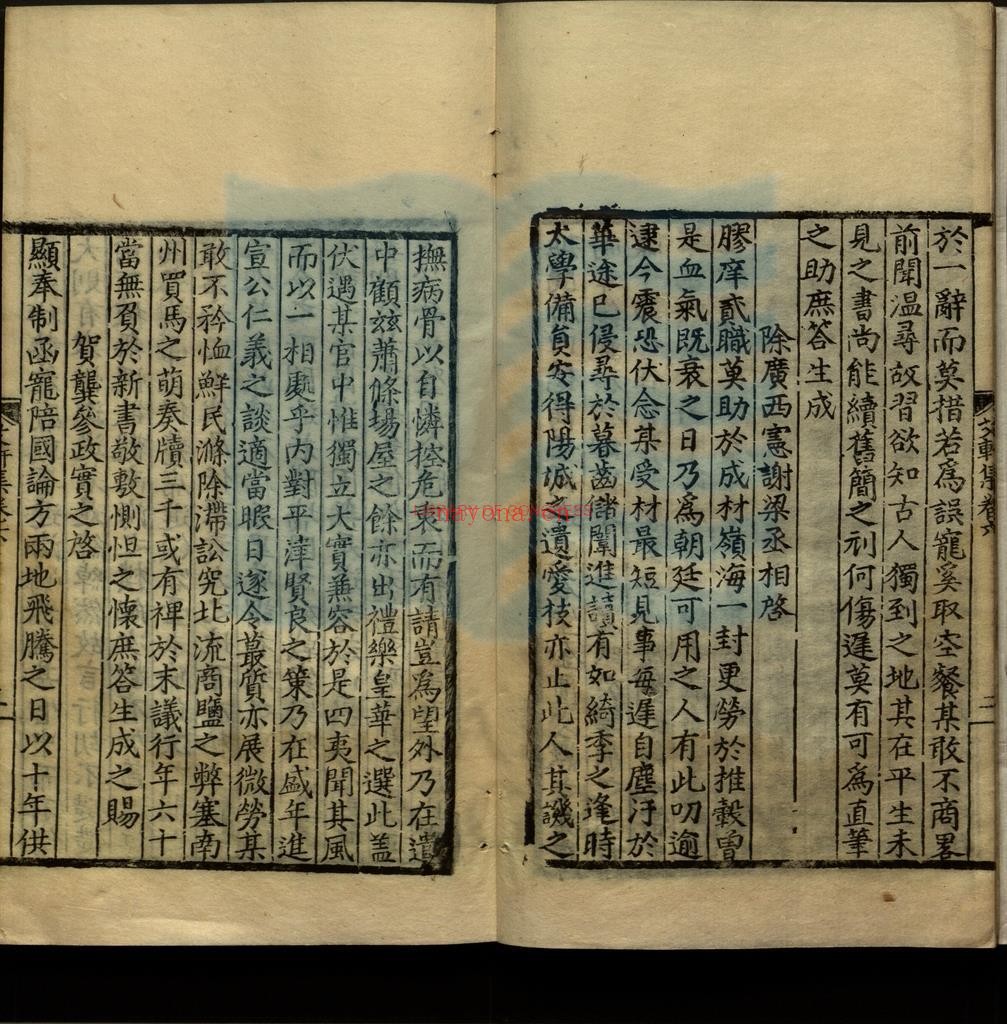 於一辭而莫措若爲誤寵奚取空餐某敢不商畧
前聞溫尋故習欲知古人獨到之地其在平生未
見之書尚能續舊簡之刓何傷遲莫有可爲直筆
之助庶答生成
除廣西憲謝梁丞相啓
膠庠貳職莫助於成材嶺海一封更勞於推轂曾
是血氣既衰之日乃爲朝廷可用之人有此叨逾
逮今震恐伏念某受材最短見事每遲自塵汙於
華途已侵尋於暮齒儲闈進讀有如綺季之逢時
太學備員安得陽城之遺愛技亦止此人其譏之
撫病骨以自憐控危衷而有請豈爲望外乃在遣
中顧兹蕭條場屋之餘亦出禮樂皇華之選此盖
伏遇某官中惟獨立大實兼容於是四夷聞其風
而以一相處乎内對平津賢良之策乃在盛年進
宣公仁義之談適當暇日遂令蕞質亦展微勞某
敢不矜恤鮮民滌除滯訟究北流商鹽之弊塞南
州買馬之萌奏牘三千或有裨於末議行年六十
當無負於新書敬敷惻怛之懷庶答生成之賜
賀龔參政實之啓
顯奉制函寵陪國論方兩地飛騰之日以十年供
軒集卷六
二